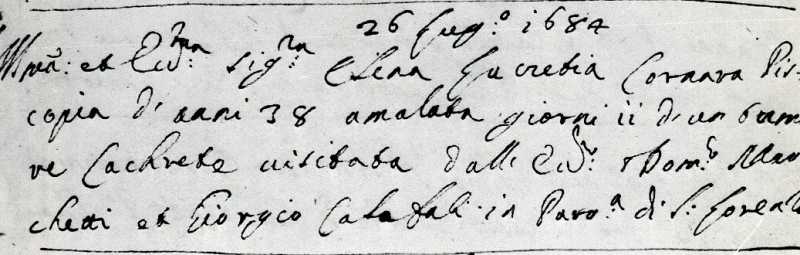 26 Lug.° 1684
et Ecc.ma Sig.ra Elena Lucretia Cornara Pis-
copia d'anni 38 amalata giorni ii d'un tumo
re Cachrete visitata dall Ecc.r Dom.o Mar
chetti et Giorgio Calafati in Paro.a di S: Lorenzo